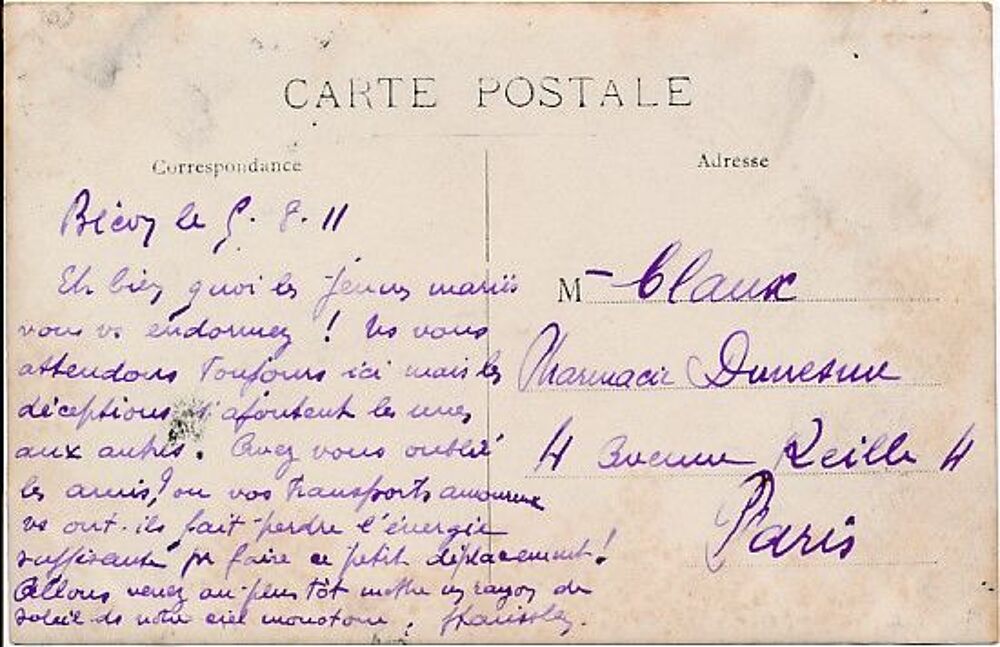 CARTE POSTALE
Correspondance
Adresse
le 5. 8. 11
Eh bien quoi les jeunes mariés
vous vs endormez ! Ns vous
attendons toujours ici mais les
déceptions s'ajoutent les unes
aux autres. Avez vous oublié
les amis, ou vos transports amoureux
vs ont-ils fait perdre l'énergie
suffisante pr faire ce petit déplacement !
Allons venez au plus tôt mettre un rayon de
soleil ds notre ciel monotone.
M Claux
Pharmacie
4 avenue Reille 4
Paris